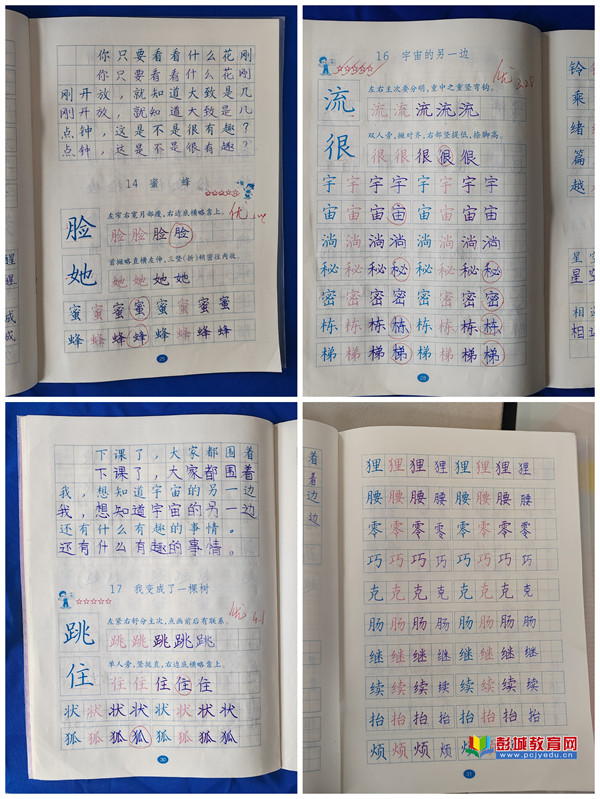 你只要看看什么花刚
你只要看看什么花刚
刚开放，就知道大致是几
刚开放，就知道大致是几
点钟，这是不是很有趣？
点钟，这是不是很有趣？
14 蜜 蜂
优
左窄右宽月部瘦，右边底横略靠上。
脸 脸脸脸脸
首撇略直横左伸，三竖(折)稍密往内收。
她 她她她她
蜜蜜蜜蜜蜜蜜蜜蜜
蜂蜂蜂蜂蜂蜂蜂蜂
16 宇宙的另一边
优
左右主次要分明，重中之重竖弯钩。
流 流流流流流
双人旁，撇对齐，右部竖提低，捺脚高。
很 很很很很很
宇宇宇宇宇宇宇
宙宙宙宙宙宙宙
淌淌淌淌淌淌淌
秘秘秘秘秘秘秘
密密密密密密密
栋栋栋栋栋栋栋
梯梯梯梯梯梯梯
28
铃
乘
绪
篇
越
星空
星空
相
相
下课了，大家都围着
下课了，大家都围着
我，想知道宇宙的另一边
我，想知道宇宙的另一边
还有什么有趣的事情。
还有什么有趣的事情。
17 我变成了一棵树
优
左紧右舒分主次，点画前后有联系。
跳 跳跳跳跳跳
单人旁，竖挺直，右边底横略靠上。
住 住住住住住
状状状状状状状状
狐狐狐狐狐狐狐狐
30
着
着
边
边
狸狸狸狸狸狸狸狸
腰腰腰腰腰腰腰腰
零零零零零零零零
巧巧巧巧巧巧巧巧
克克克克克克克克
肠肠肠肠肠肠肠肠
继继继继继继继继
续续续续续续续续
抬抬抬抬抬抬抬抬
烦烦烦烦烦
31
彭城教育网
www.pcjyedu.cn